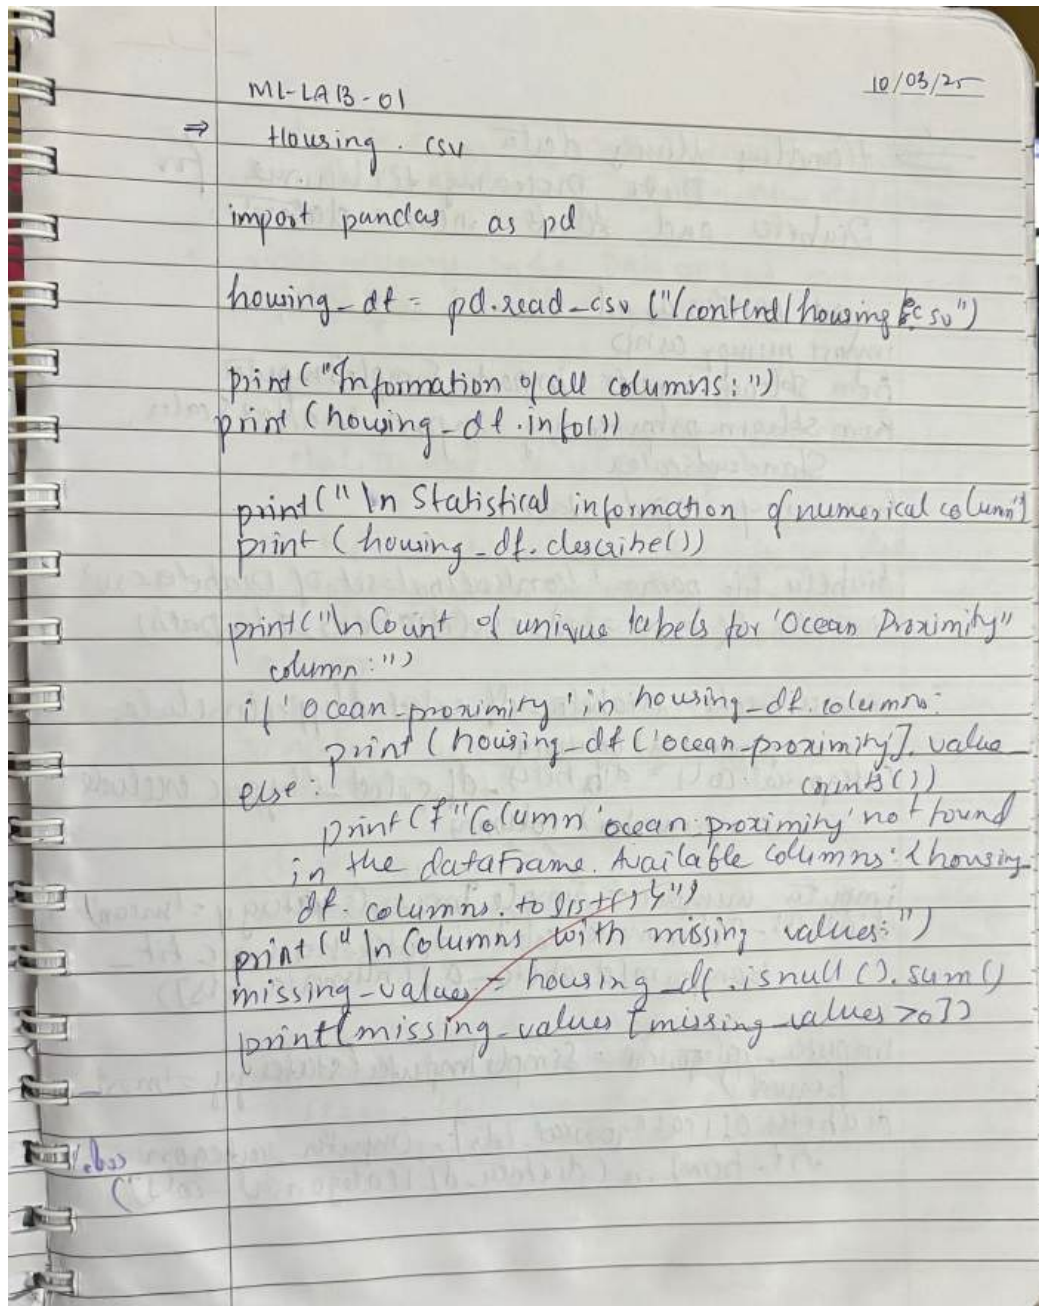 ML-LAB-01
10/03/25
⇒ Housing. csv
import pandas as pd
housing_df = pd.read_csv ("/content/housing.csv")
print ("Information of all columns:")
print (housing_df.info())
print (" \n Statistical information of numerical column")
print (housing_df.describe())
print("\n Count of unique labels for 'Ocean Proximity"
column:")
if 'ocean_proximity' in housing_df.columns:
print (housing_df ['ocean_proximity']. value_
counts())
else:
print (f "Column 'ocean_proximity' not found
in the dataframe. Available columns: {housing_
df. columns. to list()}")
print (" \n Columns with missing values:")
missing_values = housing_df.isnull().sum()
print(missing_values [missing_values >0])